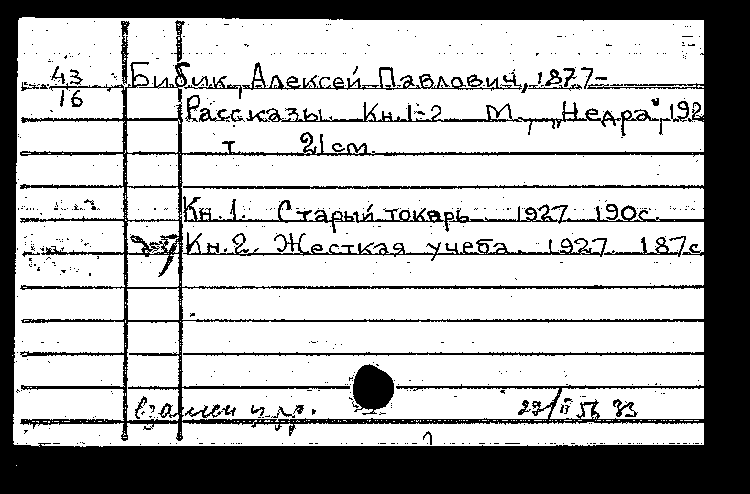 43
16
Бибик, Алексей Павлович, 1877-
Рассказы. Кн.1-2 М., „Недра", 192
т 21 см.
Кн. 1. Старый токарь. 1927. 190с.
Кн. 2. Жесткая учеба. 1927. 187с
взамен
29/II 56